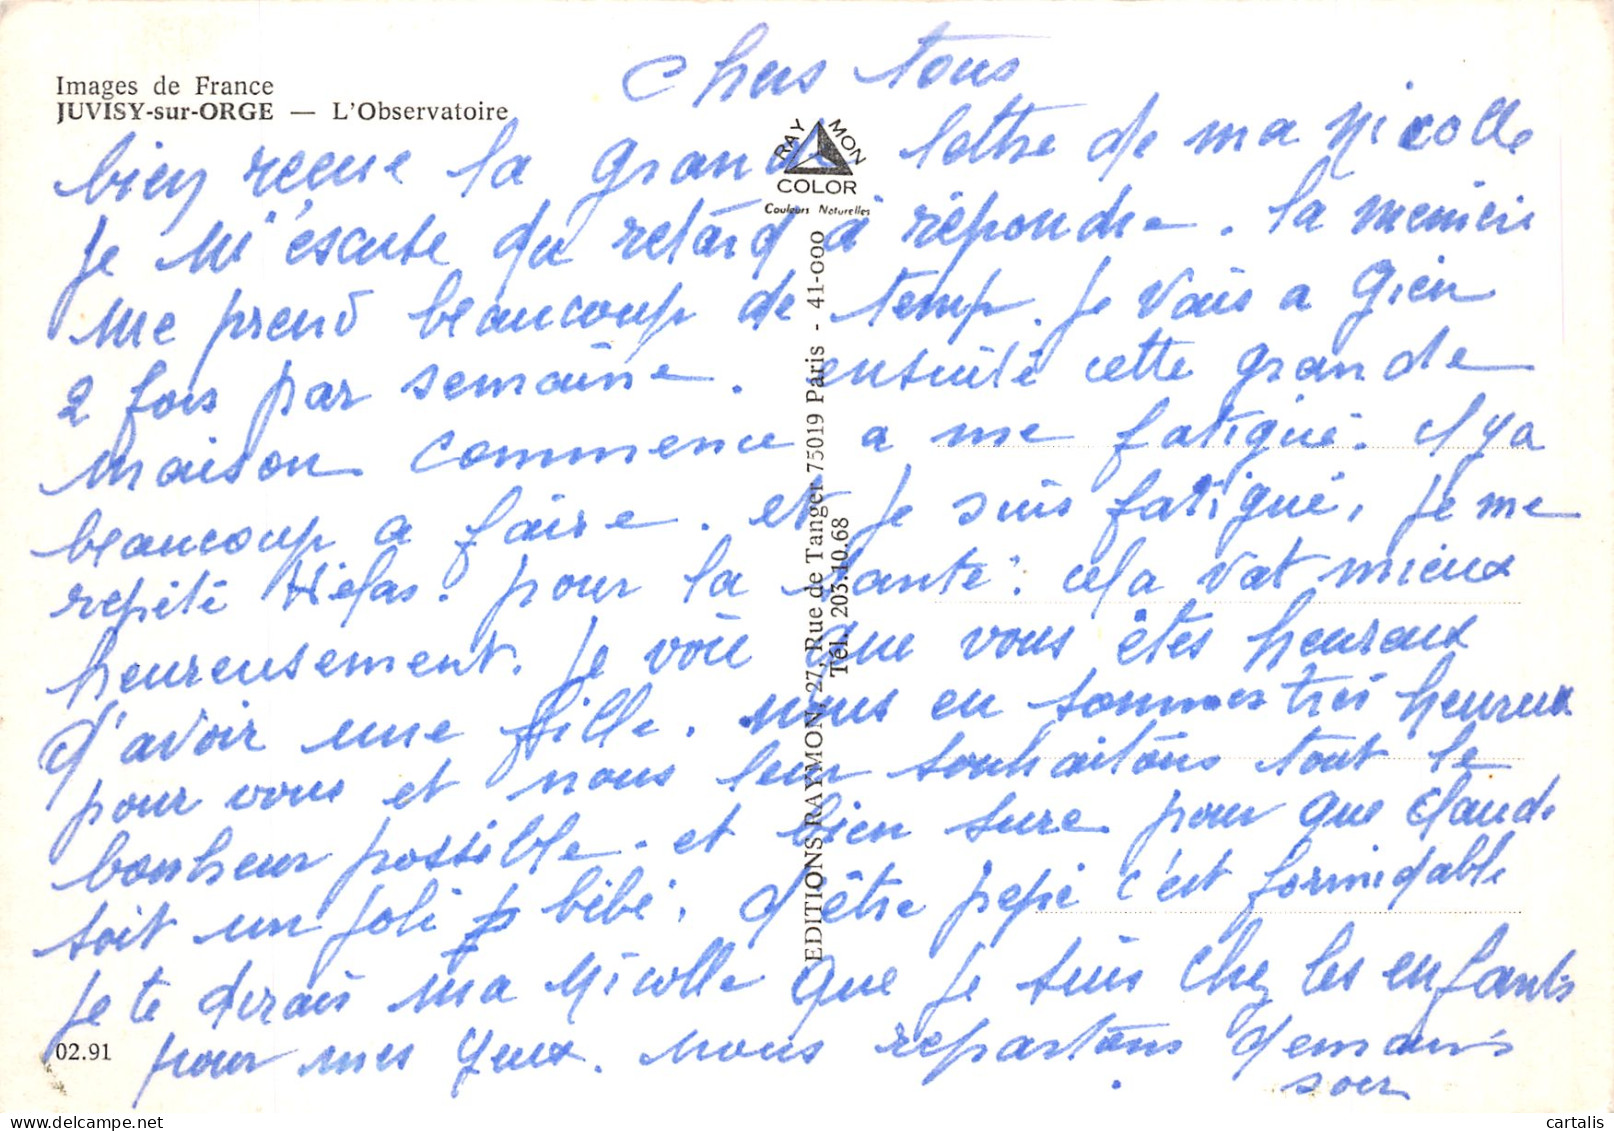 Images de France
JUVISY-sur-ORGE — L'Observatoire
Chers tous
bien reçue la grande lettre de ma Nicolle
je m'escuse du retard à répondre. la
me prend beaucoup de temp. je vais a Gien
2 fois par semaine. ensuite cette grande
maison commence a me fatigué. il y a
beaucoup a faire. et je suis fatigué, je me
repète Hélas. pour la santé. cela vat mieux
heureusement. je voie que vous êtes heureux
d'avoir une fille. nous en sommes très heureux
pour vous et nous leur souhaitons tout le
bonheur possible. et bien sure pour que Claude
soit un joli bébé. d'être pepé c'est formidable
je te dirais ma Nicolle que je suis chez les enfants
pour mes yeux. nous repartons demain
soir
RAYMON
COLOR
Couleurs Naturelles
EDITIONS RAYMON, 27, Rue de Tanger 75019 Paris - 41-000
Tél. 203.10.68
02.91
cartalis